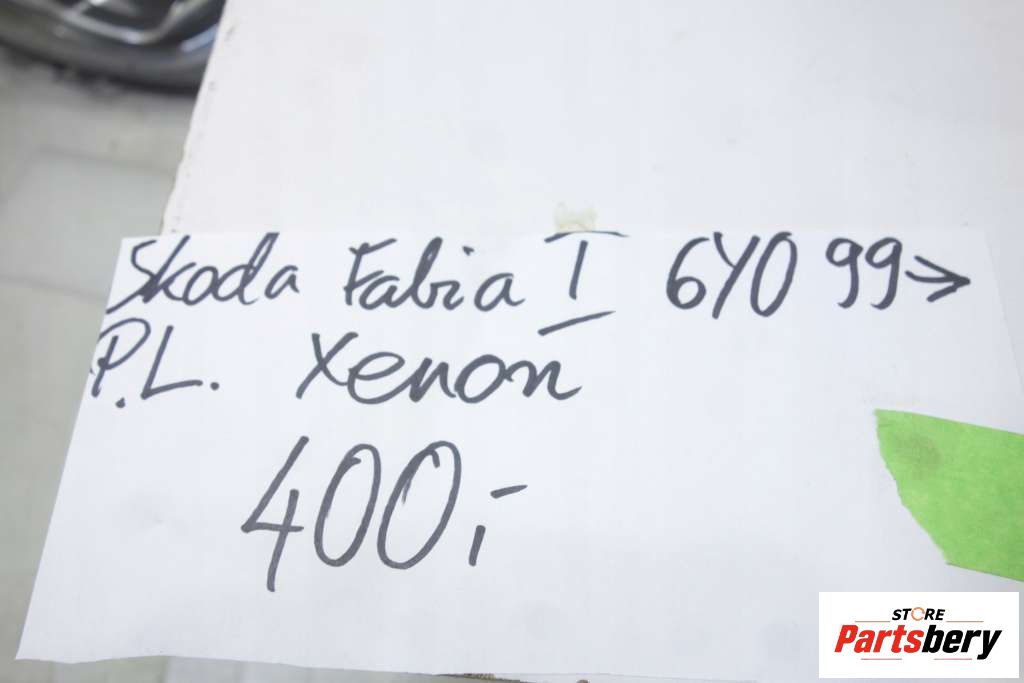 Skoda Fabia I 6Y0 99>
P.L. Xenon
400,-
STORE
Partsbery